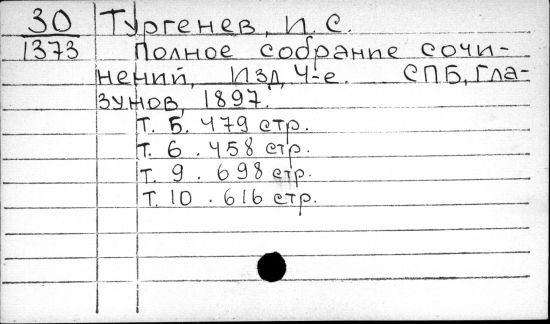 30 Тургенев, И. С.
1373 Полное собрание сочи-
нений, Изд. 4-е. СПБ, Гла-
зунов, 1897.
Т. 5. 479 стр.
Т. 6. 458 стр.
Т. 9. 698 стр.
Т. 10. 616 стр.